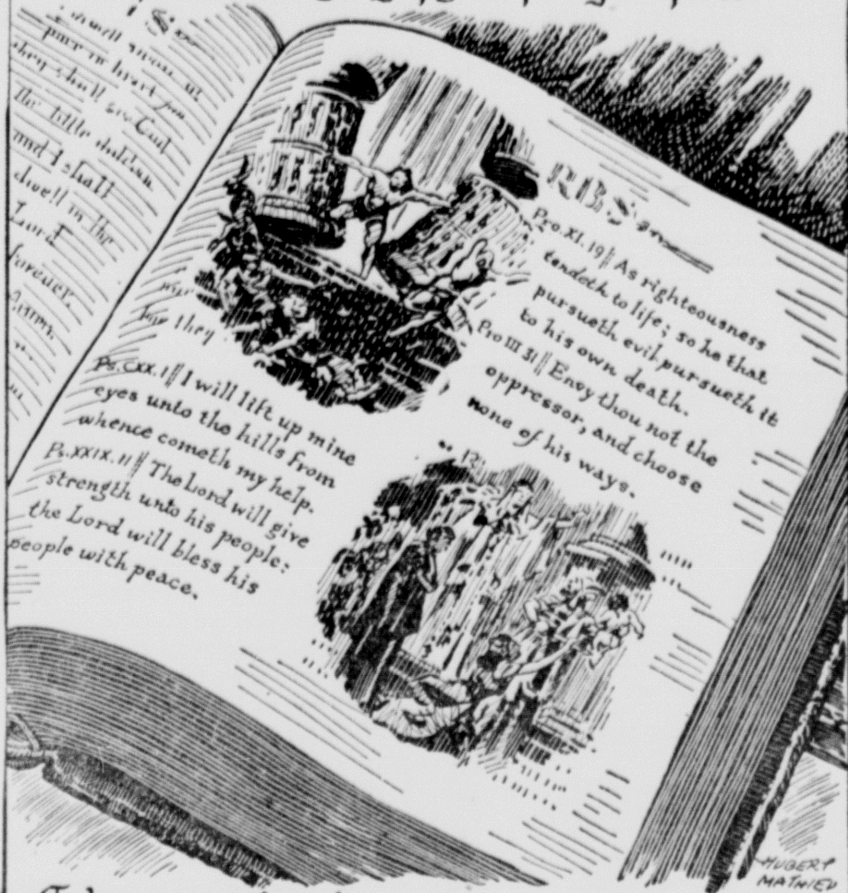 pure in heart for
they shall see God
The little children
and I shall
dwell in the
Lord
forever
for they
Ps. CXX. 1 || I will lift up mine
eyes unto the hills from
whence cometh my help.
Ps. XXIX. 11 || The Lord will give
strength unto his people:
the Lord will bless his
people with peace.
RBS
Pro. XI. 19 || As righteousness
tendeth to life; so he that
pursueth evil pursueth it
to his own death.
Pro III 31 || Envy thou not the
oppressor, and choose
none of his ways.
HUBERT
MATHIEU